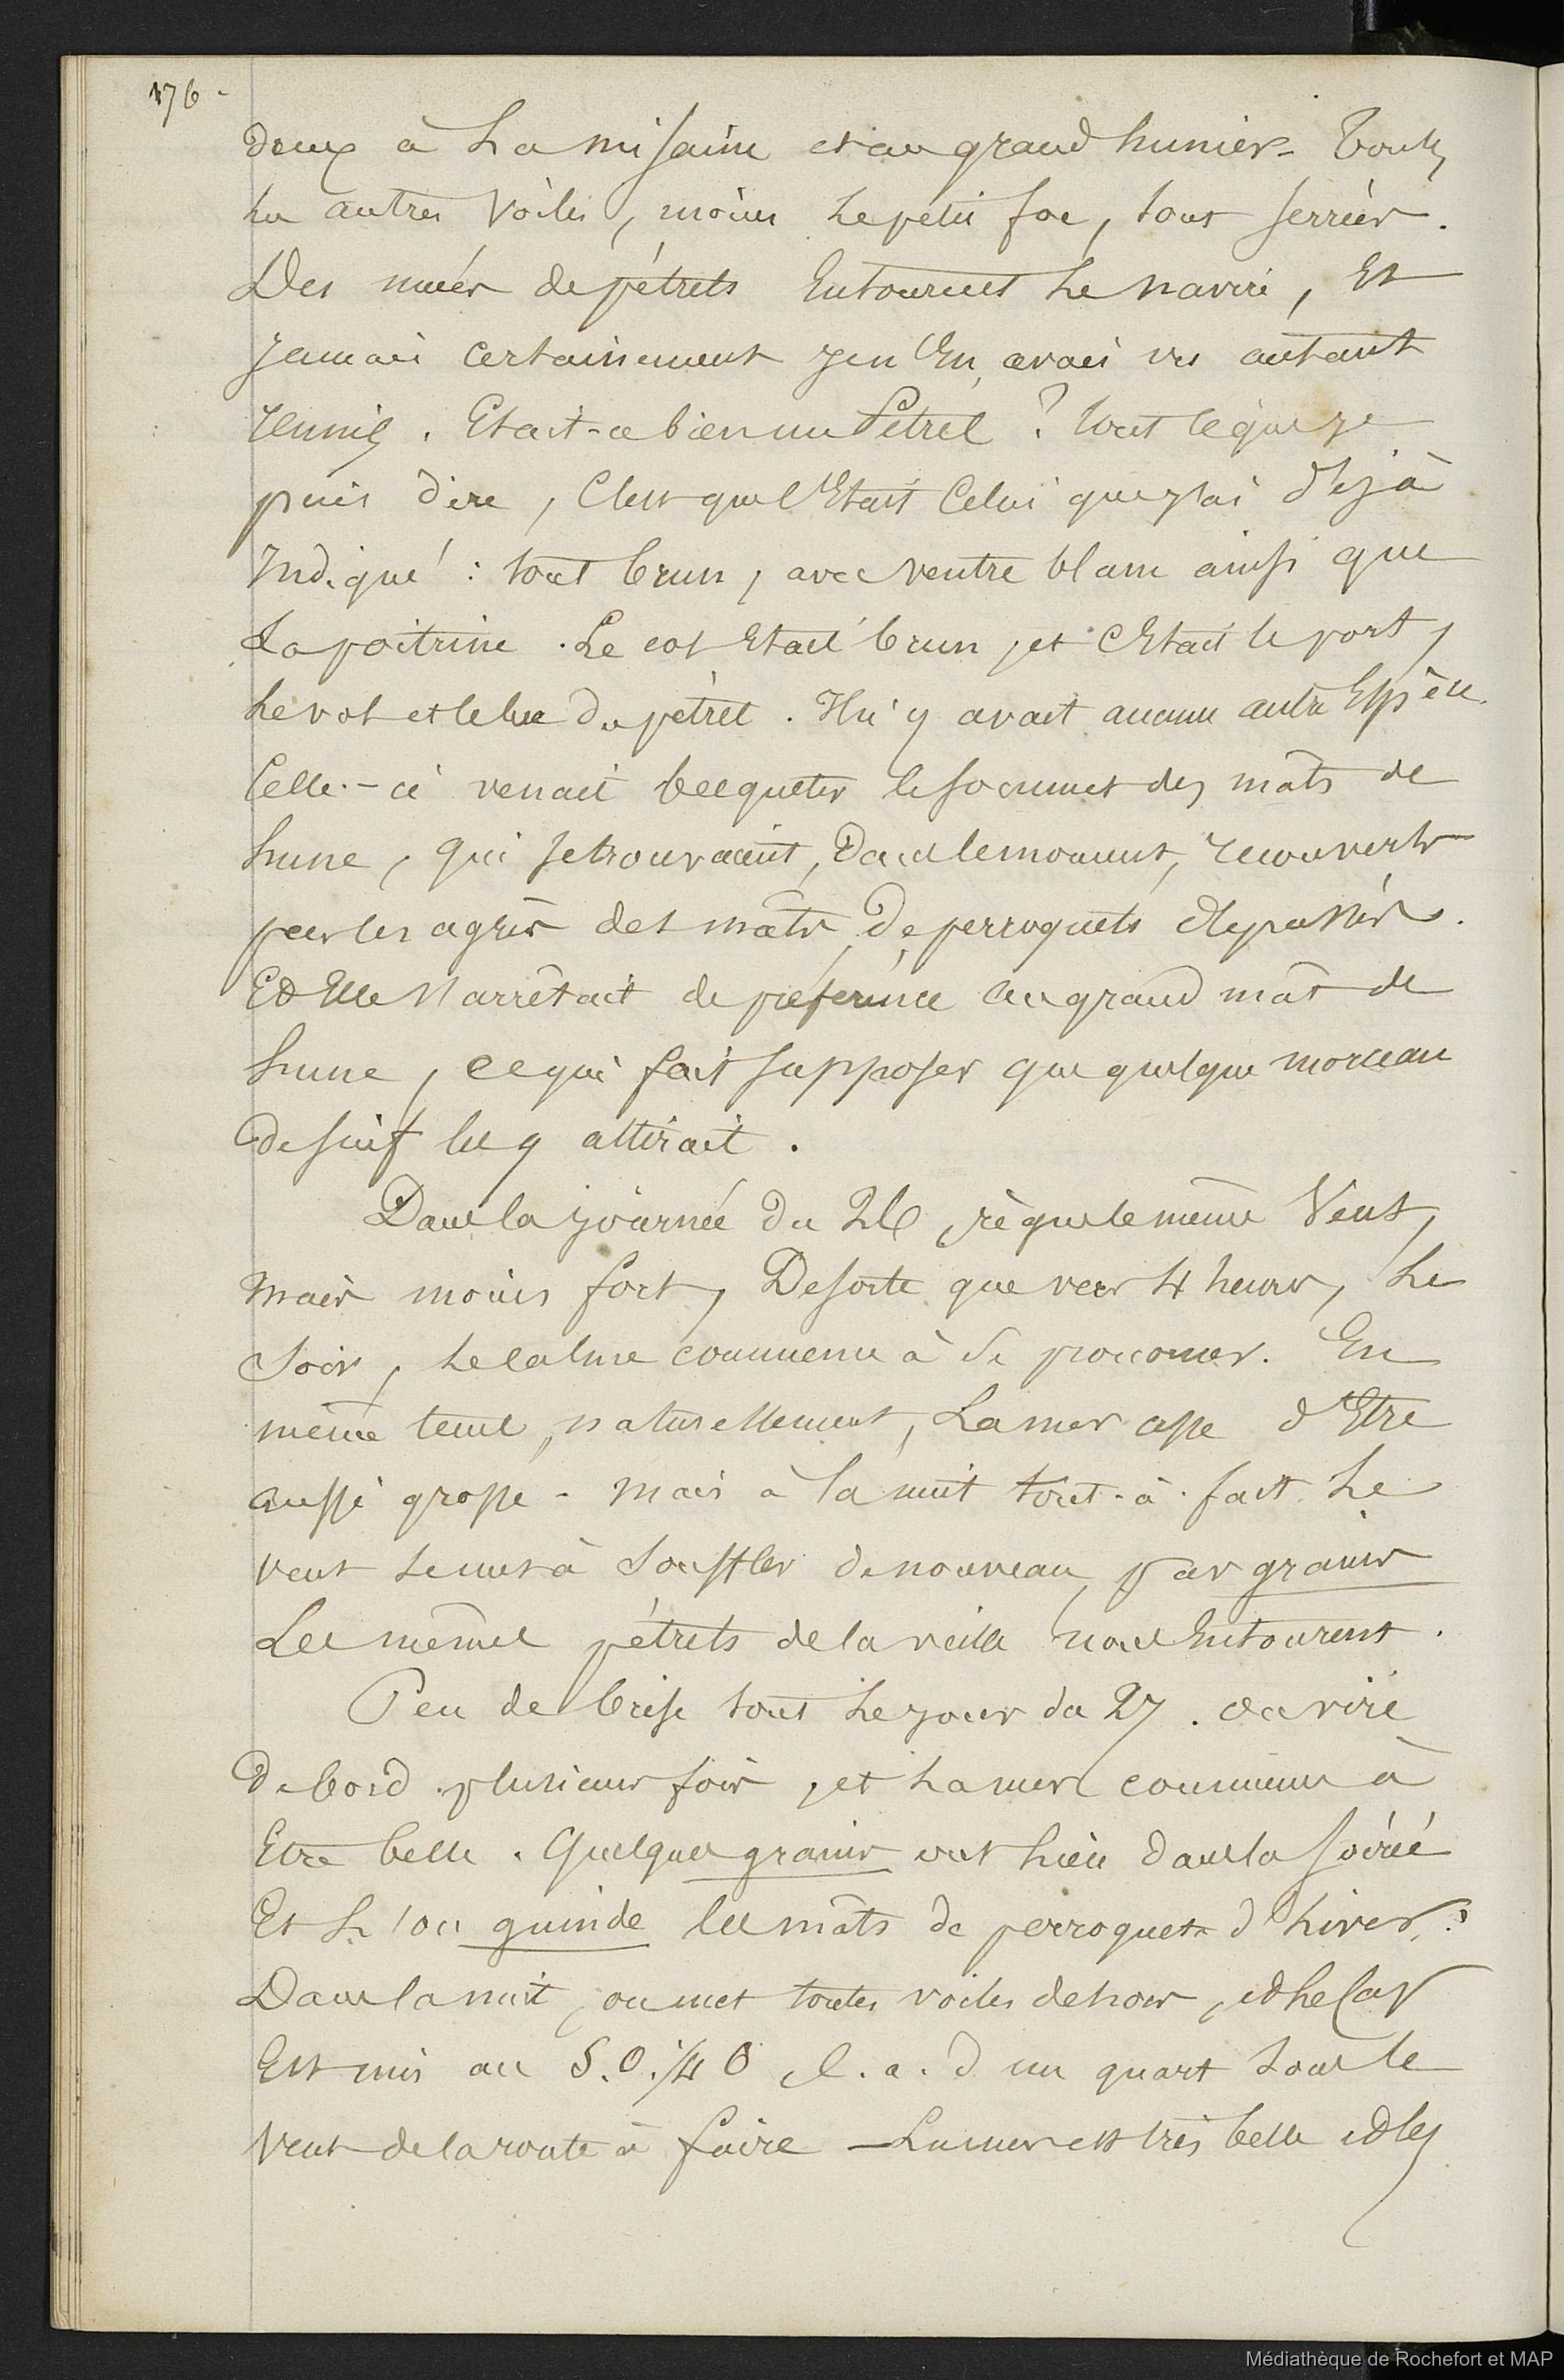 176 -
deux à la misaine et au grand hunier - Toutes
les autres voiles, moins le petit foc, sont serrées.
Des nuées de pétrels entourent le navire, et
jamais certainement je n'en avais vu autant
réunis. Etait-ce bien un Pétrel ? Tout ce que je
puis dire, c'est que c'était celui que j'ai déjà
indiqué : tout brun, avec ventre blanc ainsi que
la poitrine. Le col était brun, et c'était le port,
le vol et le bec du pétrel. Il n'y avait aucune autre espèce.
Celle-ci venait becqueter le sommet des mâts de
hune, qui se trouvaient, dans le moment, recouverts
par les agrès des mâts de perroquets dépassés.
Et elle s'arrêtait de préférence au grand mât de
hune, ce qui fait supposer que quelque morceau
de suif les y attirait.
Dans la journée du 26, règne le même vent,
mais moins fort, de sorte que vers 4 heures, le
soir, le calme commence à se prononcer. En
même temps, naturellement, la mer cesse d'être
aussi grosse - mais à la nuit tout-à-fait le
vent se met à souffler de nouveau, par grains
Les mêmes pétrels de la veille nous entourent.
Peu de brise tout le jour du 27. On vire
de bord plusieurs fois, et la mer commence à
être belle. Quelques grains ont lieu dans la soirée
et l'on guinde les mâts de perroquets d'hiver.
Dans la nuit, on met toutes voiles dehors, et le cap
est mis au S.O. 1/4 O c. a. d un quart sous le
vent de la route à faire — La mer est très belle et les
Médiathèque de Rochefort et MAP